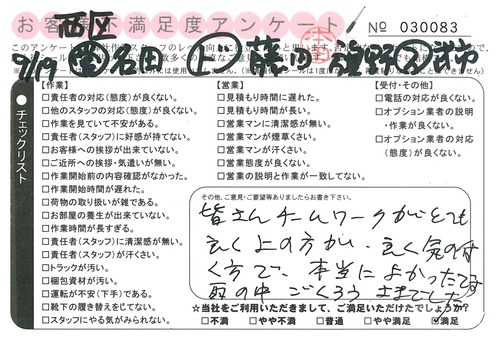 お客様不満足度アンケート
No 030083
西区
9/19
【作業】
□責任者の対応(態度)が良くない。
□他のスタッフの対応(態度)が良くない。
□作業を見ていて不安がある。
□責任者(スタッフ)に好感が持てない。
□お客様への挨拶が出来ていない。
□ご近所への挨拶・気遣いが無い。
□作業開始前の内容確認がなかった。
□作業開始時間が遅れた。
□荷物の取り扱いが雑である。
□お部屋の養生が出来ていない。
□作業時間が長すぎる。
□責任者(スタッフ)に清潔感が無い。
□責任者(スタッフ)が汗くさい。
□トラックが汚い。
□梱包資材が汚い。
□運転が不安(下手)である。
□靴下の履き替えを怠てない。
□スタッフにやる気がみられない。
【営業】
□見積もり時間に遅れた。
□見積もり時間が長い。
□営業マンに清潔感が無い。
□営業マンが煙草くさい。
□営業マンが汗くさい。
□営業態度が良くない。
□営業の説明と作業が一致してない。
【受付・その他】
□電話の対応が良くない。
□オプション業者の説明
・作業が良くない。
□オプション業者の対応
(態度)が良くない。
チェックリスト
その他、ご意見・ご要望等ありましたらお書き下さい。
皆さんチームワークがとても
良く上の方がい、良く気の付
く方で、本当によかったです
雨の中 ごくろうさまでした
☆当社をご利用いただきまして、ご満足いただけたでしょうか?
□不満 □やや不満 □普通 □やや満足 ☑満足